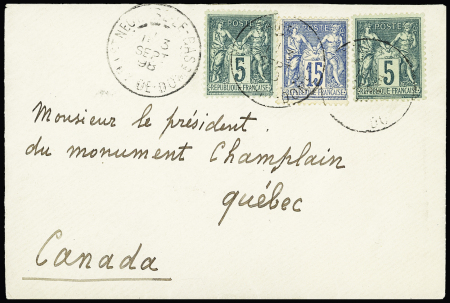 SEPT
98
POSTE
5
REPUBLIQUE FRANÇAISE
POSTE
15
POSTE
5
REPUBLIQUE FRANÇAISE
Monsieur le président
du monument Champlain
québec
Canada